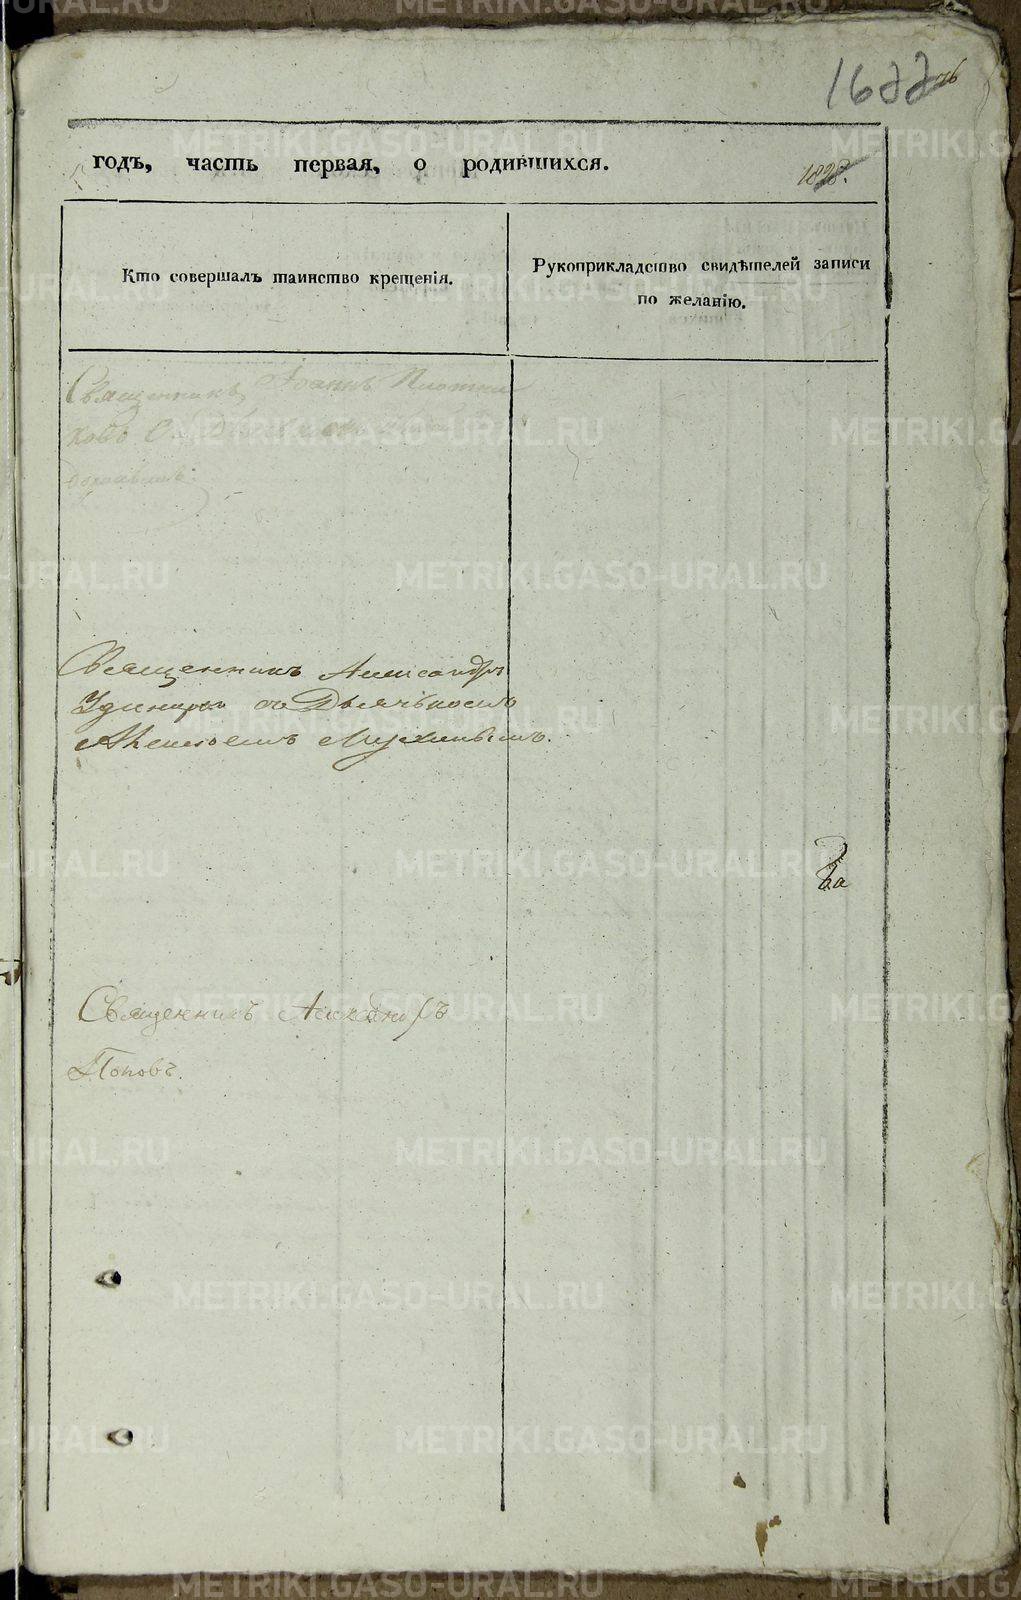 1622
годъ, часть первая, о родившихся.
1828.
Кто совершалъ таинство крещенія.
Рукоприкладство свидѣтелей записи
по желанію.
Священникъ Іоаннъ Плотни
ковъ
Священникъ Александръ
Удинцов съ Дьячькомъ
Алексѣемъ
Священникъ Александръ
Поповъ.
METRIKI.GASO-URAL.RU